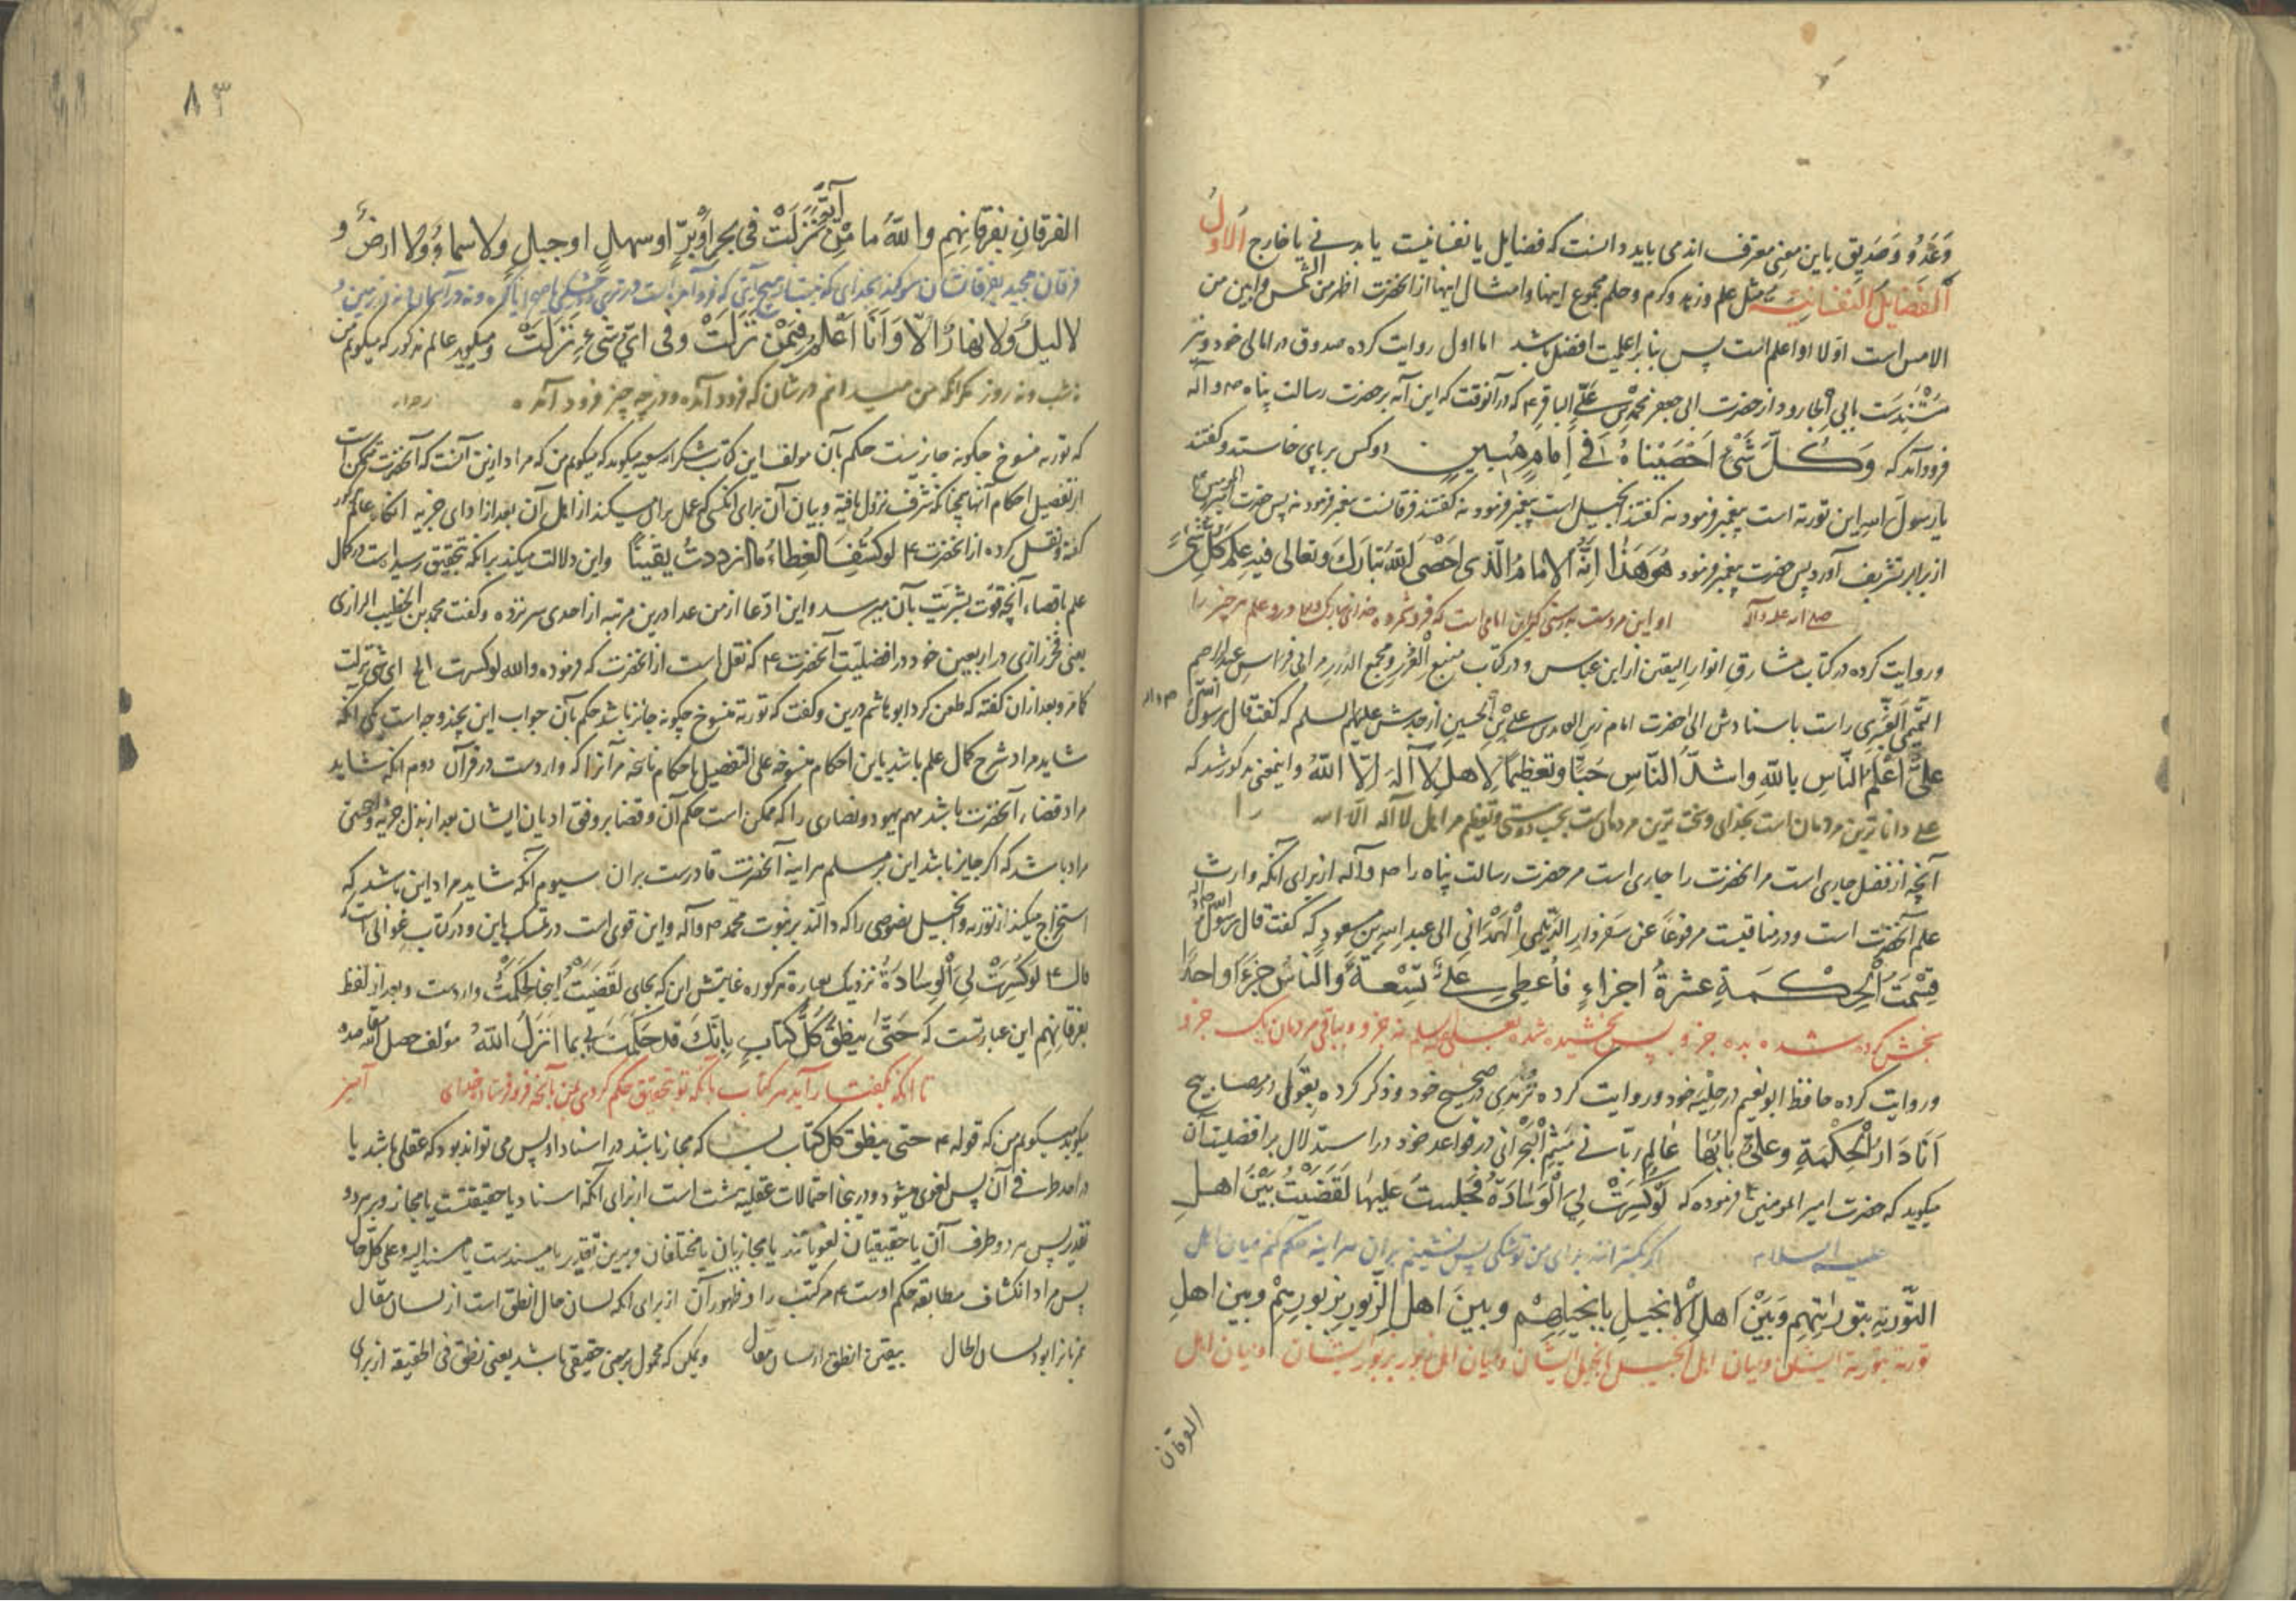 وَعَدُوّ وَصَدیق باین معنی معترف اند می باید دانست که فضایل یا نفسانیت یا بدنی یا خارج الاول
الفضایل النفسانیة مثل علم و زهد و کرم و حلم مجموع اینها و امثال اینها از آنحضرت اظهر من الشمس و ابین من
الامس است اولا او اعلم است پس بنابر اعلمیت افضل باشد اما اول روایت کرده صدوق در امالی خود و نیز
مُسْنَدست بابی الجارود از حضرت ابی جعفر محمد بن علی الباقر ۴ که در آنوقت که این آیه بر حضرت رسالت پناه ص و آله
فرود آمد که وَكُلَّ شَيْءٍ اَحْصَيْنَاهُ فِي اِمَامٍ مُبِينٍ دو کس بر پای خاستند و گفتند
یا رسول الله این توریة است پیغمبر فرمود نه گفتند انجیل است پیغمبر فرمود نه گفتند فرقانست پیغمبر فرمود نه پس حضرت امیر المومنین
از برابر تشریف آورد پس حضرت پیغمبر فرمود هُوَ هَذَا اِنَّهُ الامامُ الَّذی اَحْصَی اللّهُ تبارَكَ و تعالی فیهِ عِلْمَ كُلِّ شَيْءٍ
صلی الله علیه و آله او این مردست بدرستی که این امامی است که فرو شمرده خدای تبارک و تعالی درو علم هر چیز را
و روایت کرده در کتاب مشارق انوار الیقین از ابن عباس و در کتاب منبع الغرر و مجمع الدرر مر ابی فراس عبد الرحیم
التمیمی العنبری راست باسنادش الی حضرت امام زین العابدین علی بْنِ الحسین از جدش علیهم السلم که گفت قال رسول الله
عَلِيٌّ اَعْلَمُ النّاسِ بِاللّهِ وَاشَدُّ النّاسِ حُبًّا وتَعْظِيمًا لِاَهْلِ لَا آلَهَ اِلّا اللّهُ و اینمعنی مذکور شد که
علی داناترین مردمان است بخدای و سخت ترین مردمان ست بحسب دوستی و تعظیم مر اهل لا اله الا الله را
آنچه از فضل جاری است مر آنحضرت را جاری است مر حضرت رسالت پناه را ص و آله از برای آنکه وارث
علم آنحضرت است و در مناقبست مرفوعًا عن سفردار الدیلمی الْهَمْدَانی الی عبد الله بن مسعود که گفت قال رسول الله
قِسْمَتُ الْحِكْمَةِ عَشَرةُ اجزاءٍ فاُعطِی عَلِیٌّ تِسْعةً وَالنّاسُ جزءًا واحدًا
بخش کرده شده بده جزو پس بخشیده شد بعلی علیه السلم نه جزو و بباقی مردمان یک جزو
و روایت کرده حافظ ابو نعیم در حلیه خود و روایت کرده ترمذی در صحیح خود و ذکر کرده بغوی در مصابیح
اَنَا دَارُ الْحِكْمَةِ وعَلِیٌّ بابُها عالِم ربانی مَیثم الْبَحْرانی در قواعد خود در استدلال بر افضلیت آن
میگوید که حضرت امیر المومنین ۴ فرموده که لَوْ كُسِرَتْ لِيَ الْوِسَادَةُ فَجَلَسْتُ عَلَيْهَا لَقَضَيْتُ بَيْنَ اَهْلِ
علیه السلام اگر بگسترانند برای من توشکی پس نشینم بر آن هر اینه حکم کنم میان اهل
التّوریةِ بتوراتِهِم وَبَيْنَ اَهْلِ الْانجيلِ بِانجيلِهِمْ وبينَ اهلِ الزّبورِ بزبورِهِمْ وبين اهلِ
توریة بتوریة ایشان و میان اهل انجیل بانجیل ایشان و میان اهل زبور بزبور ایشان و میان اهل
الفرقان
۸۳
الفرقانِ بفرقانِهِم واللهُ ما مِنْ آيَةٍ نَزَلَتْ فی بحرٍ اَوْ بَرٍّ او سهلٍ او جبلٍ ولا سماءٍ ولا ارضٍ و
فرقان مجید بفرقانشان سوگند بخدای که نیست هیچ آیتی که فرود آمده است در تری و خشکی یا صحرا یا کوه و نه در آسمان و نه در زمین و
لا ليلٍ ولا نهارٍ الّا وَاَنَا اَعْلَمُ فِيمَنْ نَزَلَتْ وفی اَیِّ شیءٍ نَزَلَتْ و میگوید عالم مذکور که میگویم من
نه شب و نه روز مگر آنکه من میدانم در شان که فرود آمده و در چه چیز فرود آمده
که توریة منسوخ چگونه جایزست حکم بآن مولف این کتاب شکر الله سعیه میگوید که میگویم من که مراد ازین آنست که آنحضرت متمکن است
از تفصیل احکام آنها چنانکه شرف نزول یافته و بیان آن برای آنکسی که عمل بر آن میکند از اهل آن بعد از ادای جزیه آنگاه عالم مذکور
گفته و نقل کرده از آنحضرت ۴ لو كُشِفَ الغِطاءُ ما ازددتُ يقينًا و این دلالت میکند بر آنکه بتحقیق رسیده است در کمال
علم باقصاء آنچه قوت بشریت بآن میرسد و این ادعا از من عدا درین مرتبه از احدی سر نزده و گفت محمد بن الخطیب الرازی
یعنی فخر رازی در اربعین خود در افضلیت آنحضرت ۴ که نقل است از آنحضرت که فرموده والله لو کسرت الخ ای شیء نزلت
کما مر و بعد از آن گفته که طعن کرد ابو هاشم درین و گفت که توریة منسوخ چگونه جایز باشد حکم بآن جواب این بچند وجه است یکی آنکه
شاید مراد شرح کمال علم باشد باین احکام منسوخه علی التفصیل باحکام ناسخه مر آنرا که واردست در قرآن دوم آنکه شاید
مراد قضاء آنحضرت باشد مهم یهود و نصاری را که ممکن است حکم آن و قضا بر وفق ادیان ایشان بعد از بذل جزیه
مراد باشد که اگر جایز باشد این بر مسلم هر اینه آنحضرت قادرست بران سیوم آنکه شاید مراد این باشد که
استخراج میکند از توریة و انجیل نصوصی را که دالند بر نبوت محمد ص و آله و این قوی است در تمسک باین و در کتاب غوالی است که
قال ۴ لو كُسِرَتْ لِيَ الْوِسَادَةُ نزدیک بعبارة مذکوره غایتش این که بجای لقضیتُ اینجا لحکمتُ واردست و بعد از لفظ
بفرقانِهِم این عبارتست که حَتّی ینطِقَ كُلُّ كتابٍ بِاَنَّكَ قد حَكَمْتَ لِي بما انزلَ اللّهُ مولف
تا آنکه بگفتار آید هر کتاب بآنکه تو بتحقیق حکم کردی بمن بآنچه فرو فرستاد خدای
میگوید میگویم من که قوله ۴ حتی ینطق کل کتاب بسا که مجاز باشد در اسناد او پس می تواند بود که عقلی باشد یا
در احد طرفی آن پس لغوی میشود و در اینجا احتمالات عقلیه هشت است از برای آنکه اسناد یا حقیقتست یا مجاز و بر هر دو
تقدیر پس هر دو طرف آن یا حقیقیان لغویانند یا مجازیان یا مختلفان و برین تقدیر یا مسندست یا مسند الیه و علی کل حال
پس مراد انکشاف مطابقه حکم اوست ۴ مر کتب را و ظهور آن از برای آنکه لسان حال انطق است از لسان مقال
لسان الحال بیقین انطق از لسان مقال و یمکن که محمول بر معنی حقیقی باشد یعنی نطق فی الحقیقه از برای